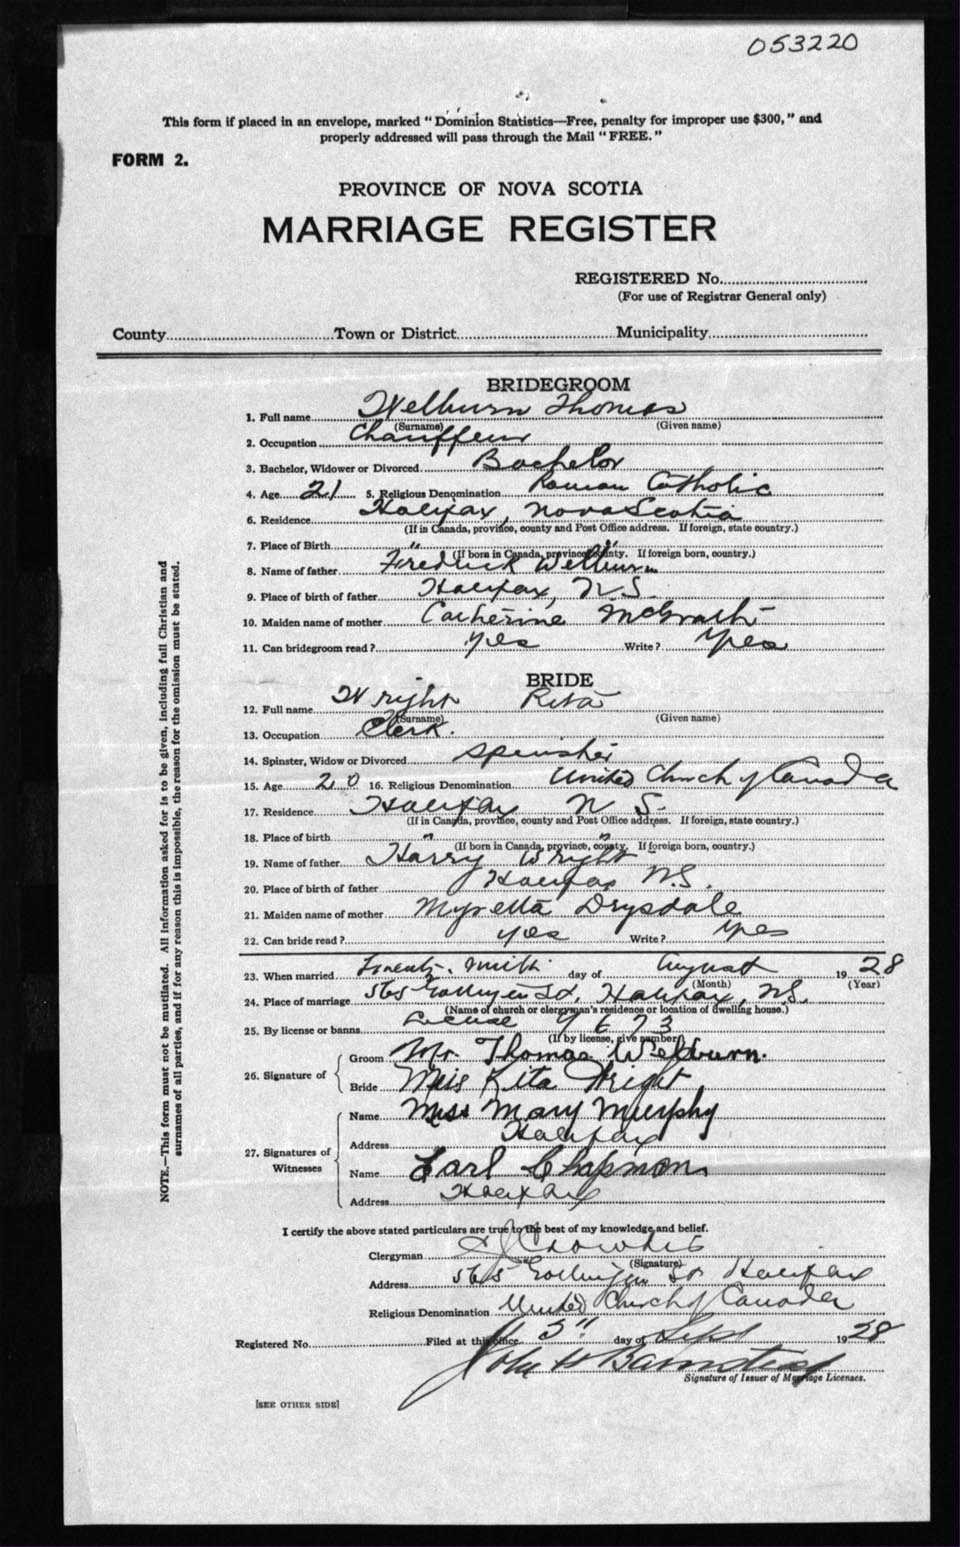 053220
This form if placed in an envelope, marked "Dominion Statistics—Free, penalty for improper use $300," and
properly addressed will pass through the Mail "FREE."
FORM 2.
PROVINCE OF NOVA SCOTIA
MARRIAGE REGISTER
REGISTERED No.
(For use of Registrar General only)
County Town or District Municipality
BRIDEGROOM
1. Full name Welburn Thomas
(Surname) (Given name)
2. Occupation Chauffeur
3. Bachelor, Widower or Divorced Bachelor
4. Age 21 5. Religious Denomination Roman Catholic
6. Residence Halifax, Nova Scotia
(If in Canada, province, county and Post Office address. If foreign, state country.)
7. Place of Birth " "
(If born in Canada, province, county. If foreign born, country.)
8. Name of father Fredrick Welburn
9. Place of birth of father Halifax, N.S.
10. Maiden name of mother Catherine McGrath
11. Can bridegroom read? yes Write? Yes
BRIDE
12. Full name Wright Rita
(Surname) (Given name)
13. Occupation Clerk.
14. Spinster, Widow or Divorced Spinster
15. Age 20 16. Religious Denomination United Church of Canada
17. Residence Halifax N S.
(If in Canada, province, county and Post Office address. If foreign, state country.)
18. Place of birth " "
(If born in Canada, province, county. If foreign born, country.)
19. Name of father Harry Wright
20. Place of birth of father Halifax N.S.
21. Maiden name of mother Myretta Drysdale
22. Can bride read? yes Write? Yes
23. When married day of August 1928
(Month) (Year)
24. Place of marriage 565 St, Halifax, N.S.
(Name of church or clergyman's residence or location of dwelling house.)
25. By license or banns License
(If by license, give number)
26. Signature of
Groom Mr. Thomas Welburn.
Bride Miss Rita Wright
27. Signatures of Witnesses
Name Miss Mary Murphy
Address Halifax
Name Earl Chapman
Address Halifax
NOTE.—This form must not be mutilated. All information asked for is to be given, including full Christian and
surnames of all parties, and if for any reason this is impossible, the reason for the omission must be stated.
I certify the above stated particulars are true to the best of my knowledge and belief.
Clergyman
(Signature)
Address 565 St Halifax
Religious Denomination United Church of Canada
Registered No. Filed at this office 5" day of Sept 1928
John H Barnstead
Signature of Issuer of Marriage Licenses.
[SEE OTHER SIDE]